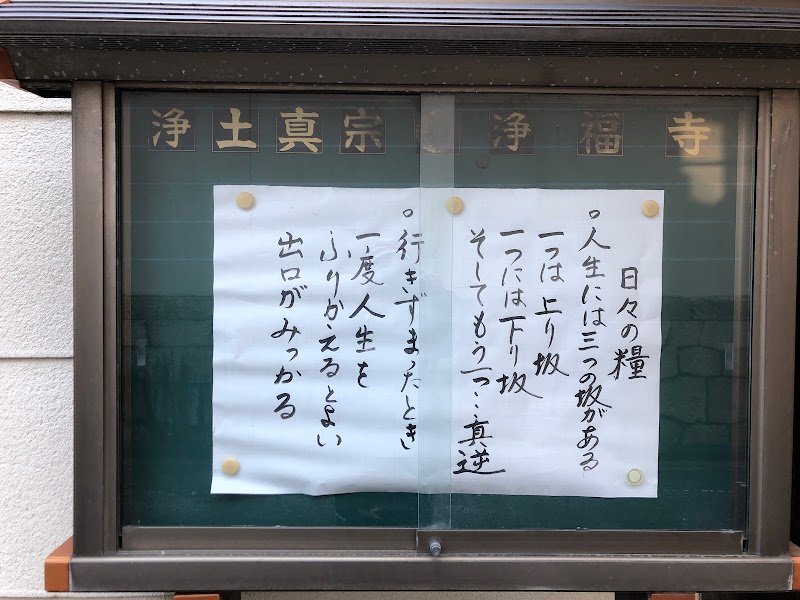 浄土真宗 浄福寺
日々の糧
○人生には三つの坂がある
一つは上り坂
一つには下り坂
そしてもう一つ…真逆
○行きずまったとき
一度人生を
ふりかえるとよい
出口がみつかる